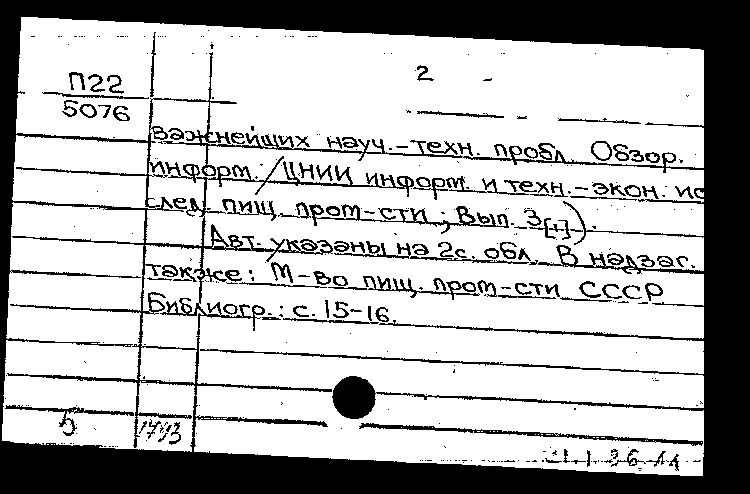 П22
5076
2 -
важнейших науч.-техн. пробл. Обзор.
информ. /ЦНИИ информ. и техн.-экон. ис
след. пищ. пром-сти ; Вып. 3[+]).
Авт. указаны на 2с. обл. В надзаг.
также: М-во пищ. пром-сти СССР
Библиогр.: с. 15-16.
5